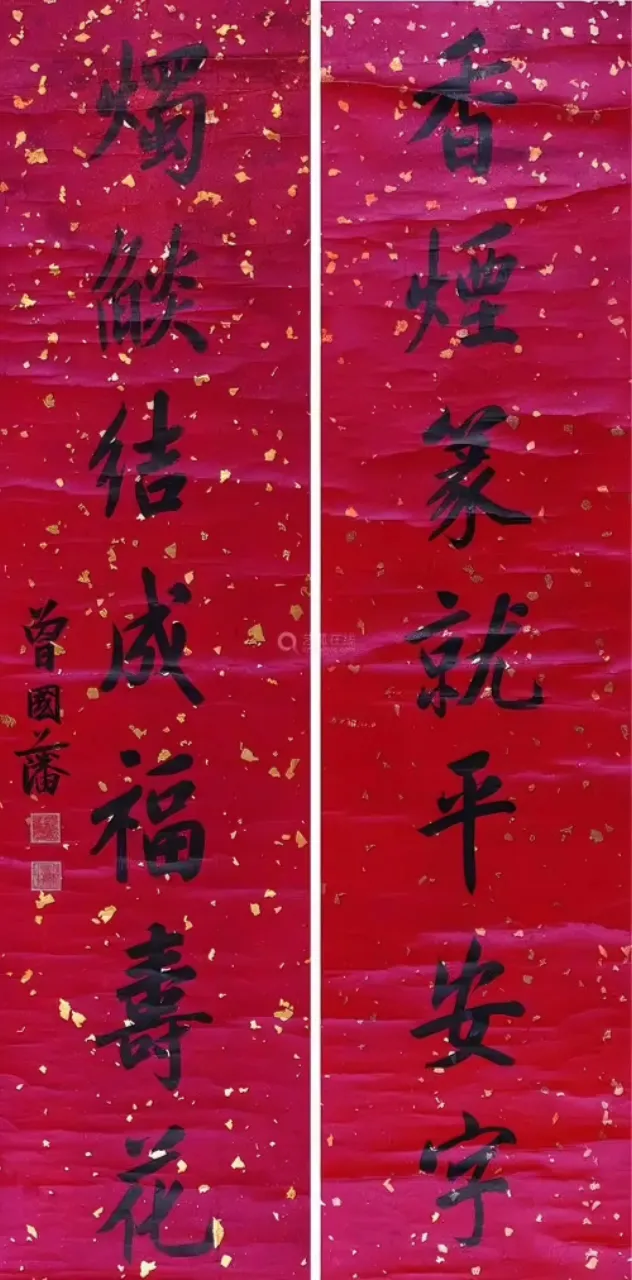 香煙篆就平安字
燭燄結成福壽花
曾國藩